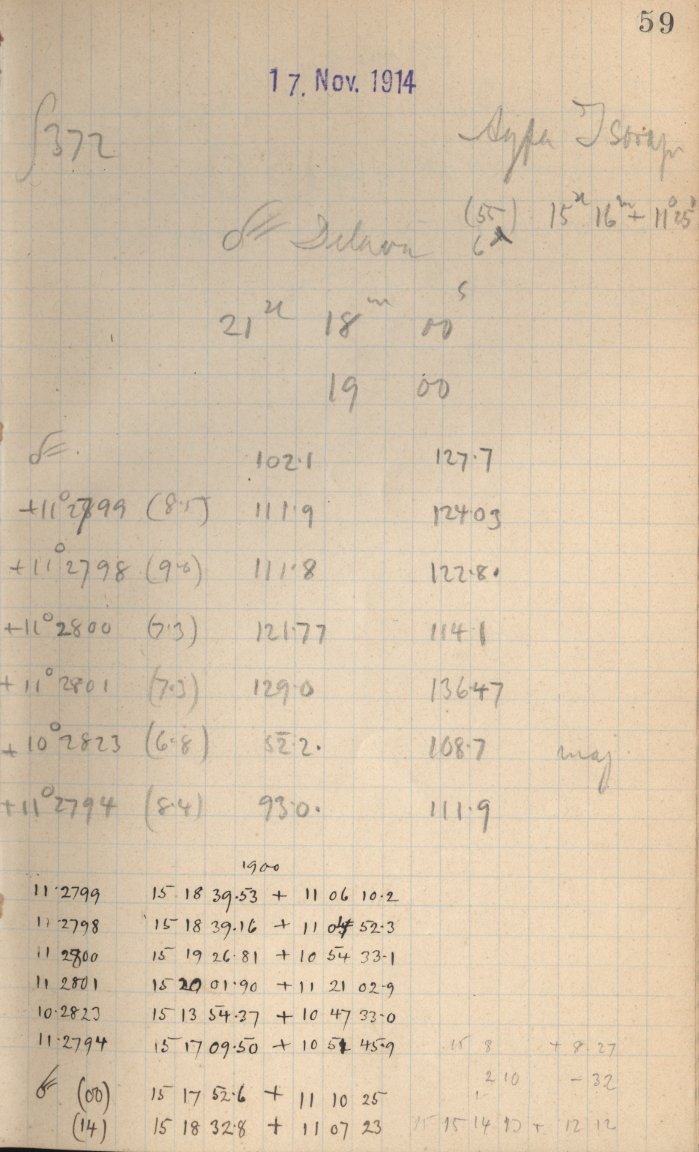 59
17. Nov. 1914
∫372
(55) 15ʰ 16ᵐ + 11° 25'
☄ Delavan 6
21ʰ 18ᵐ 00ˢ
19 00
☄ 102.1 127.7
+11° 2799 (8.5) 111.9 124.03
+11° 2798 (9.6) 111.8 122.8.
+11° 2800 (7.3) 121.77 114.1
+11° 2801 (7.3) 129.0 136.47
+10° 2823 (6.8) 52.2. 108.7 maj.
+11° 2794 (8.4) 93.0. 111.9
1900
11.2799 15 18 39.53 + 11 06 10.2
11.2798 15 18 39.16 + 11 04 52.3
11 2800 15 19 26.81 + 10 54 33.1
11 2801 15 20 01.90 + 11 21 02.9
10.2823 15 13 54.37 + 10 47 33.0
11.2794 15 17 09.50 + 10 51 45.9 15 8 + 8 27
2 10 - 32
☄ (00) 15 17 52.6 + 11 10 25
(14) 15 18 32.8 + 11 07 23 15 15 14 + 12 12